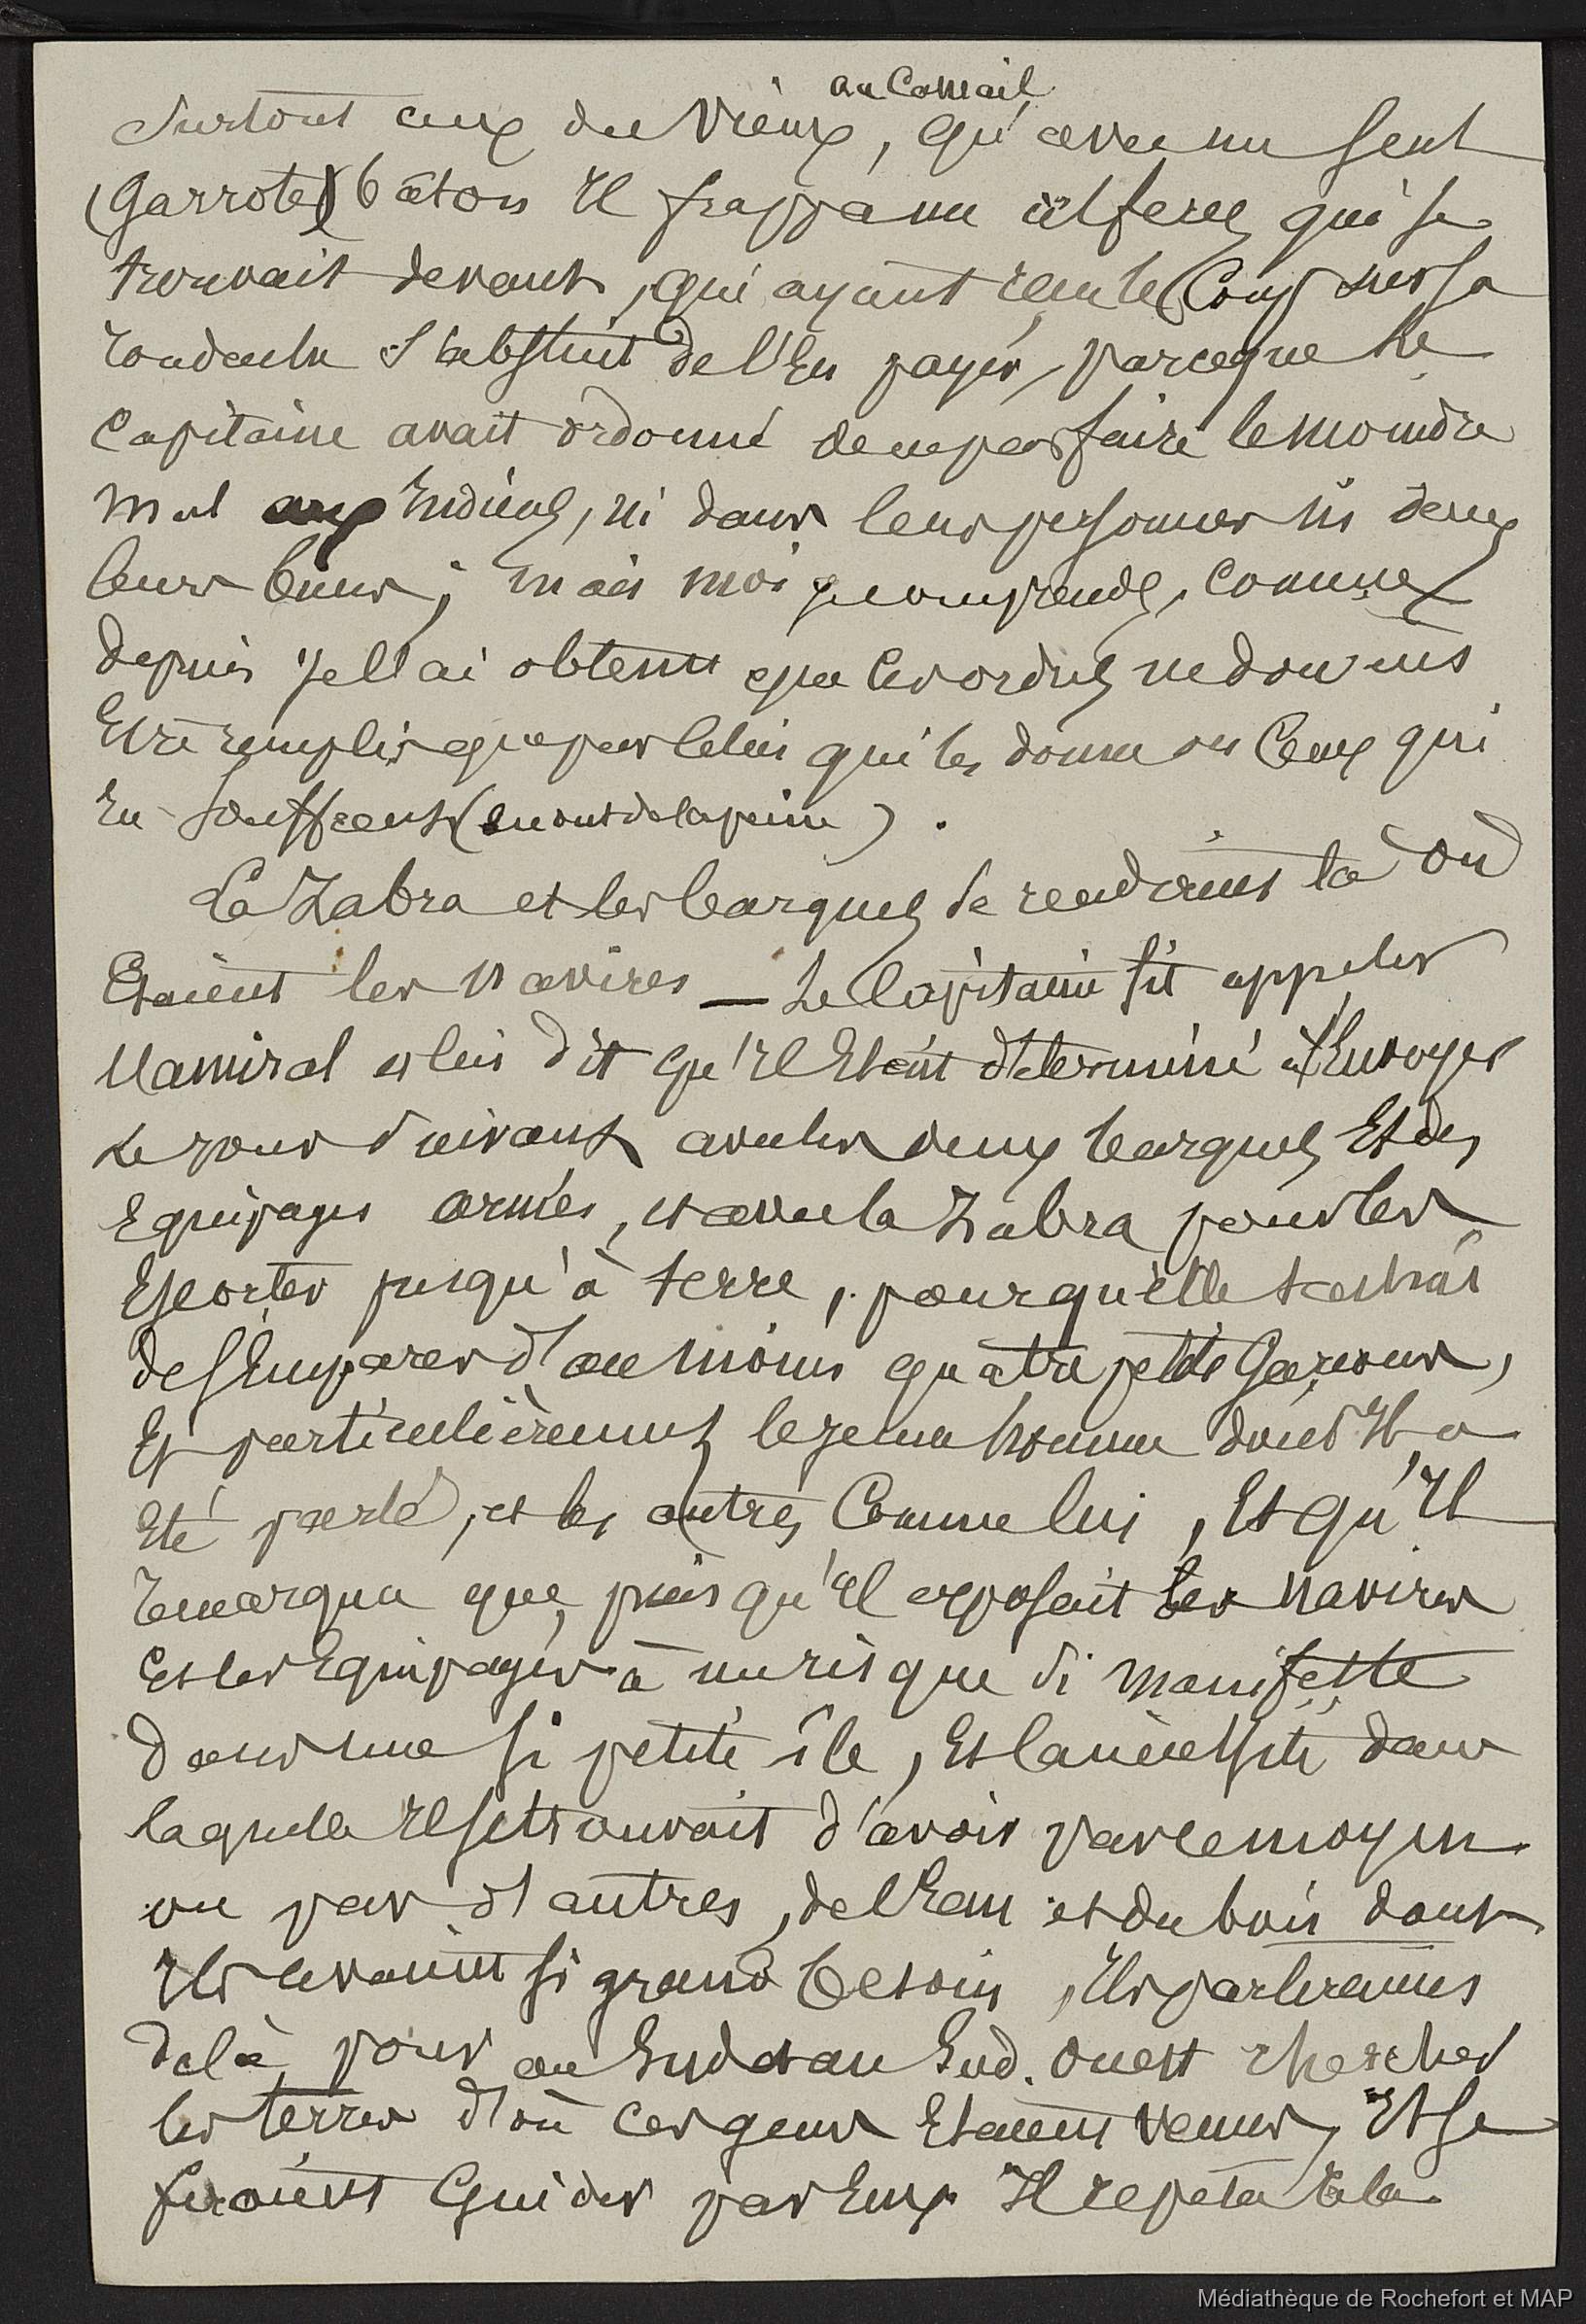 au Camail
Surtout ceux du Vieux, qu'avec un seul
(Garrote) bâton Il frappa un alferez qui se
trouvait devant, qui ayant reçu le Coup sur sa
rondache s'abstint de l'En payer, parceque le
Capitaine avait ordonné de ne pas faire le moindre
mal aux Indiens, ni dans leurs personnes ni dans
leurs biens ; mais moi je comprends, comme
depuis je l'ai obtenu que les ordres ne doivent
Etre remplis que par celui qui les donne ou Ceux qui
En souffrent (en ont de la peine) .
La Zabra et les barques se rendirent là où
Etaient les navires — Le Capitaine fit appeler
l'amiral et lui dit qu'Il Etait déterminé à l'Envoyer
Le jour suivant avec les deux barques Et des
Equipages armés, et avec la Zabra pour les
Escorter jusqu'à terre, pour qu'elle tachât
de s'Emparer d'au moins quatre petits Garçons,
Et particulièrement le jeune homme dont Il a
Eté parlé, et les autres Comme lui, Et qu'Il
remarqua que, puisqu'Il exposait les navires
Et les Equipages à un risque si manifeste
dans une si petite île, Et la nécessité dans
laquelle Il se trouvait d'avoir par ce moyen
ou par d'autres, de l'Eau et du bois dont
Ils avaient si grand besoin, Ils partiraient
de là pour au Sud et au Sud. Ouest chercher
les terres d'où ces gens Etaient venus, Et se
feraient Guider par Eux. Il repeta cela
Médiathèque de Rochefort et MAP